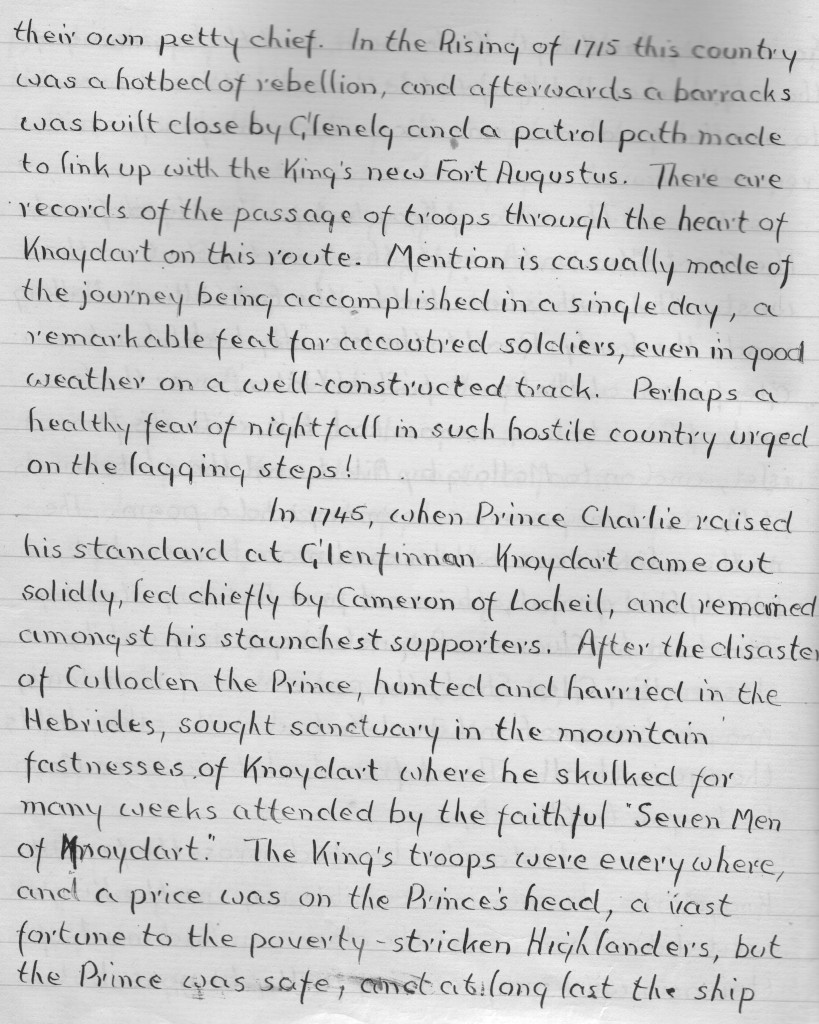 their own petty chief. In the Rising of 1715 this country
was a hotbed of rebellion, and afterwards a barracks
was built close by Glenelg and a patrol path made
to link up with the King's new Fort Augustus. There are
records of the passage of troops through the heart of
Knoydart on this route. Mention is casually made of
the journey being accomplished in a single day, a
remarkable feat for accoutred soldiers, even in good
weather on a well-constructed track. Perhaps a
healthy fear of nightfall in such hostile country urged
on the lagging steps!
In 1745, when Prince Charlie raised
his standard at Glenfinnan Knoydart came out
solidly, led chiefly by Cameron of Locheil, and remained
amongst his staunchest supporters. After the disaster
of Culloden the Prince, hunted and harried in the
Hebrides, sought sanctuary in the mountain
fastnesses of Knoydart where he skulked for
many weeks attended by the faithful "Seven Men
of Knoydart." The King's troops were everywhere,
and a price was on the Prince's head, a vast
fortune to the poverty-stricken Highlanders, but
the Prince was safe, and at long last the ship